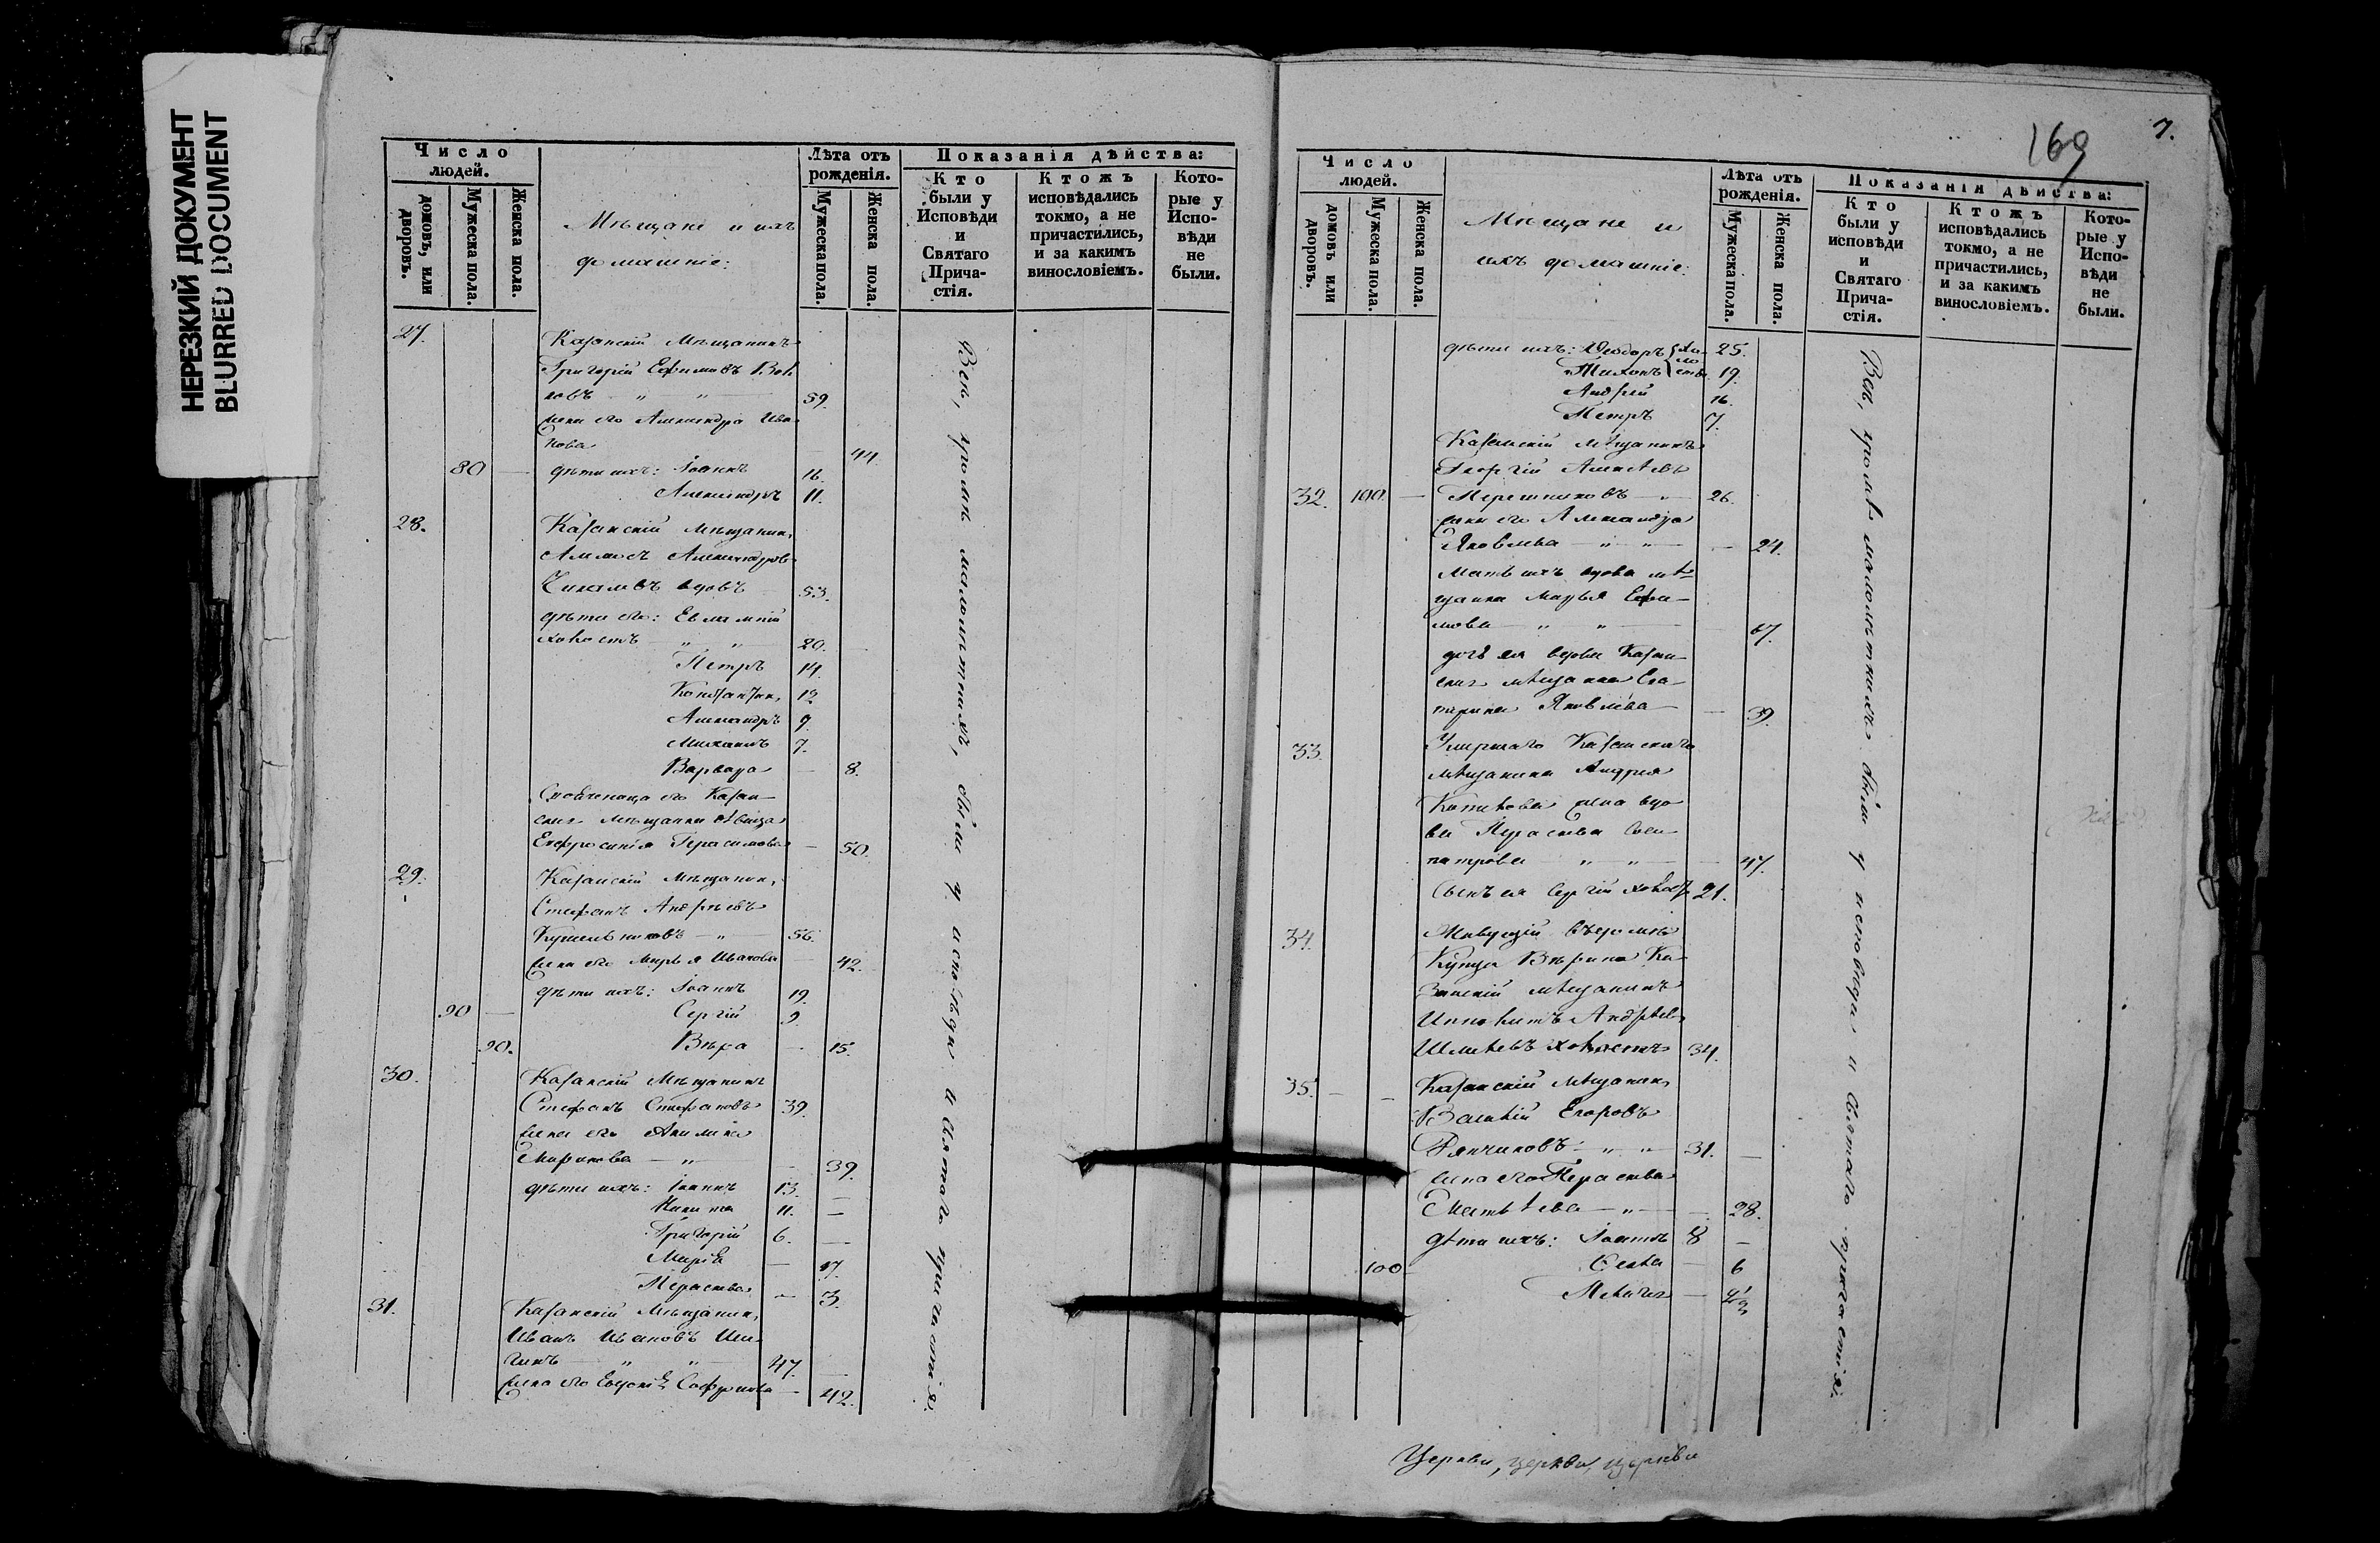 НЕРЕЗКИЙ ДОКУМЕНТ
BLURRED DOCUMENT
Число людей.
домовъ, или дворовъ.
Мужеска пола.
Женска пола.
Мѣщане и ихъ
домашніе:
Лѣта отъ рожденія.
Мужеска пола.
Женска пола.
Показанія дѣйства:
Кто были у Исповѣди и Святаго Причастія.
Ктожъ исповѣдались токмо, а не причастились, и за какимъ винословіемъ.
Которые у Исповѣди не были.
27. Казанскій Мѣщанинъ
Григорій Ефимовъ
ковъ 59.
жена его Александра Ива
нова 44.
80 дѣти ихъ: Іоаннъ 16.
Александръ 11.
28. Казанскій мѣщанин,
Александровъ
вдовъ 53.
дѣти его: Евлампій
холостъ 20.
Петръ 14.
Константин, 12
Александръ 9.
Михаилъ 7.
Варвара 8.
его Казан-
ская мѣщанка дѣвица
Евфросинія Герасимова 50.
29. Казанскій мѣщанин,
Стефанъ Андреевъ
56.
жена его Марья Иванова 42.
дѣти ихъ: Іоаннъ 19.
90 Сергій 9.
90. Вѣра 15.
30. Казанскій Мѣщанинъ
Стефанъ Стефановъ 39.
жена его Акилина
Миронова 39.
дѣти ихъ: Іоаннъ 13.
Никита 11.
Григорій 6.
Марія 17.
Параскева 3.
31. Казанскій Мѣщанин,
Иванъ Ивановъ Ши-
47.
жена его Евдокія Софронова 42.
Всѣ, кромѣ малолѣтнихъ, были у исповѣди и святаго причастія.
169
7.
Число людей.
домовъ или дворовъ.
Мужеска пола.
Женска пола.
Мѣщане и
ихъ домашніе:
Лѣта отъ рожденія.
Мужеска пола.
Женска пола.
Показанія дѣйства:
Кто были у исповѣди и Святаго Причастія.
Ктожъ исповѣдались токмо, а не причастились, и за какимъ винословіемъ.
Которые у Исповѣди не были.
дѣти ихъ: Ѳеодоръ 25.
Тихонъ 19.
Андрей 16.
Петръ 7.
Казанскій мѣщанинъ
Георгій Алексѣевъ
32. 100. 26.
жена его Александра
Яковлева 24.
Мать ихъ вдова мѣ-
щанка Марья Ефи-
мова 67.
дочь ея вдова Казан-
ская мѣщанка Ека-
терина Яковлева 39.
33. Умершаго Казанскаго
мѣщанина Андрея
жена вдо-
ва Параскева Соси-
патрова 47.
Сынъ ея Сергій холостъ 21.
34. Живущій въ домѣ
Купца Вѣрина Ка-
занскій мѣщанинъ
Ипполитъ Андреев,
холостъ 34.
35. Казанскій мѣщанин,
Василій Егоровъ
Рянчиковъ 31.
жена его Параскева
Матвѣева 28.
дѣти ихъ: Іоаннъ 8
100 6
2½
Всѣ, кромѣ малолѣтнихъ были у исповѣди и Святаго причастія.
Церкви, церкви, церкви